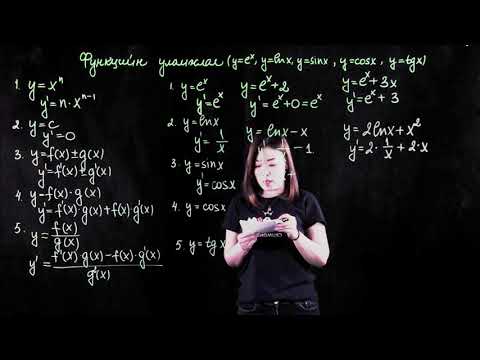 Функцийн уламжлал (y=eˣ, y=lnx, y=sinx, y=cosx, y=tgx)
1. y=xⁿ
y'=n·xⁿ⁻¹
2. y=c
y'=0
3. y=f(x)±g(x)
y'=f'(x)±g'(x)
4. y=f(x)·g(x)
y'=f'(x)·g(x)+f(x)·g'(x)
5. y=f(x)/g(x)
y'=f'(x)·g(x)-f(x)·g'(x)/g²(x)
1. y=eˣ
y'=eˣ
2. y=lnx
y'=1/x
3. y=sinx
y'=cosx
4. y=cosx
5. y=tgx
y=eˣ+2
y'=eˣ+0=eˣ
y=lnx-x
-1
y=eˣ+3x
y'=eˣ+3
y=2lnx+x²
y'=2·1/x+2·x